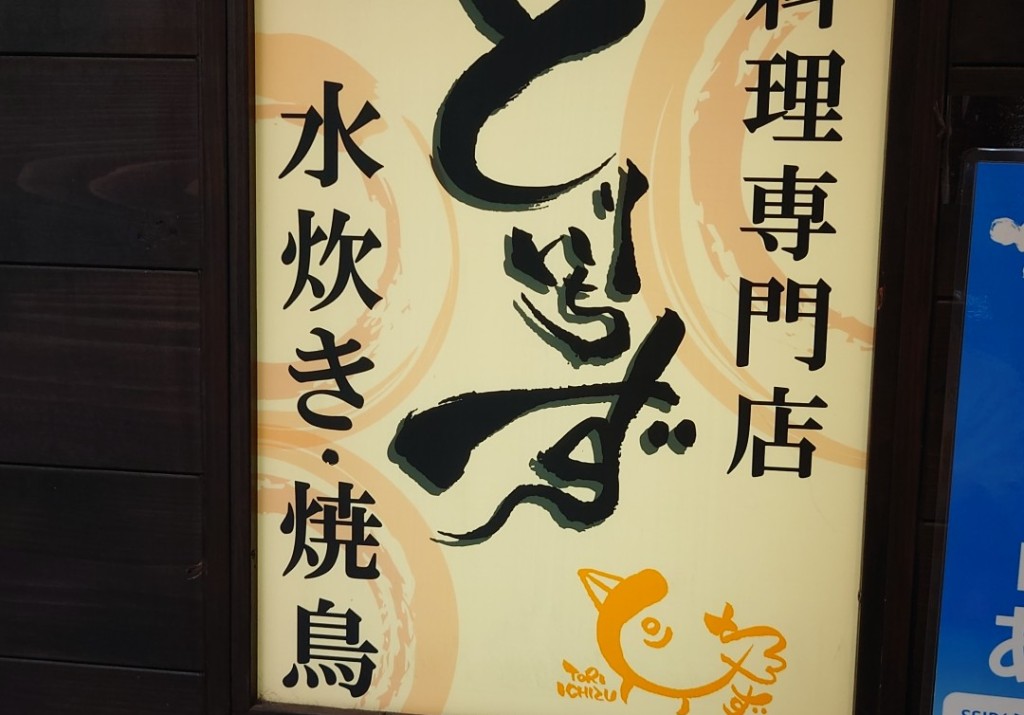 料理専門店
とりいちず
水炊き・焼鳥
TORI
ICHIZU
あ